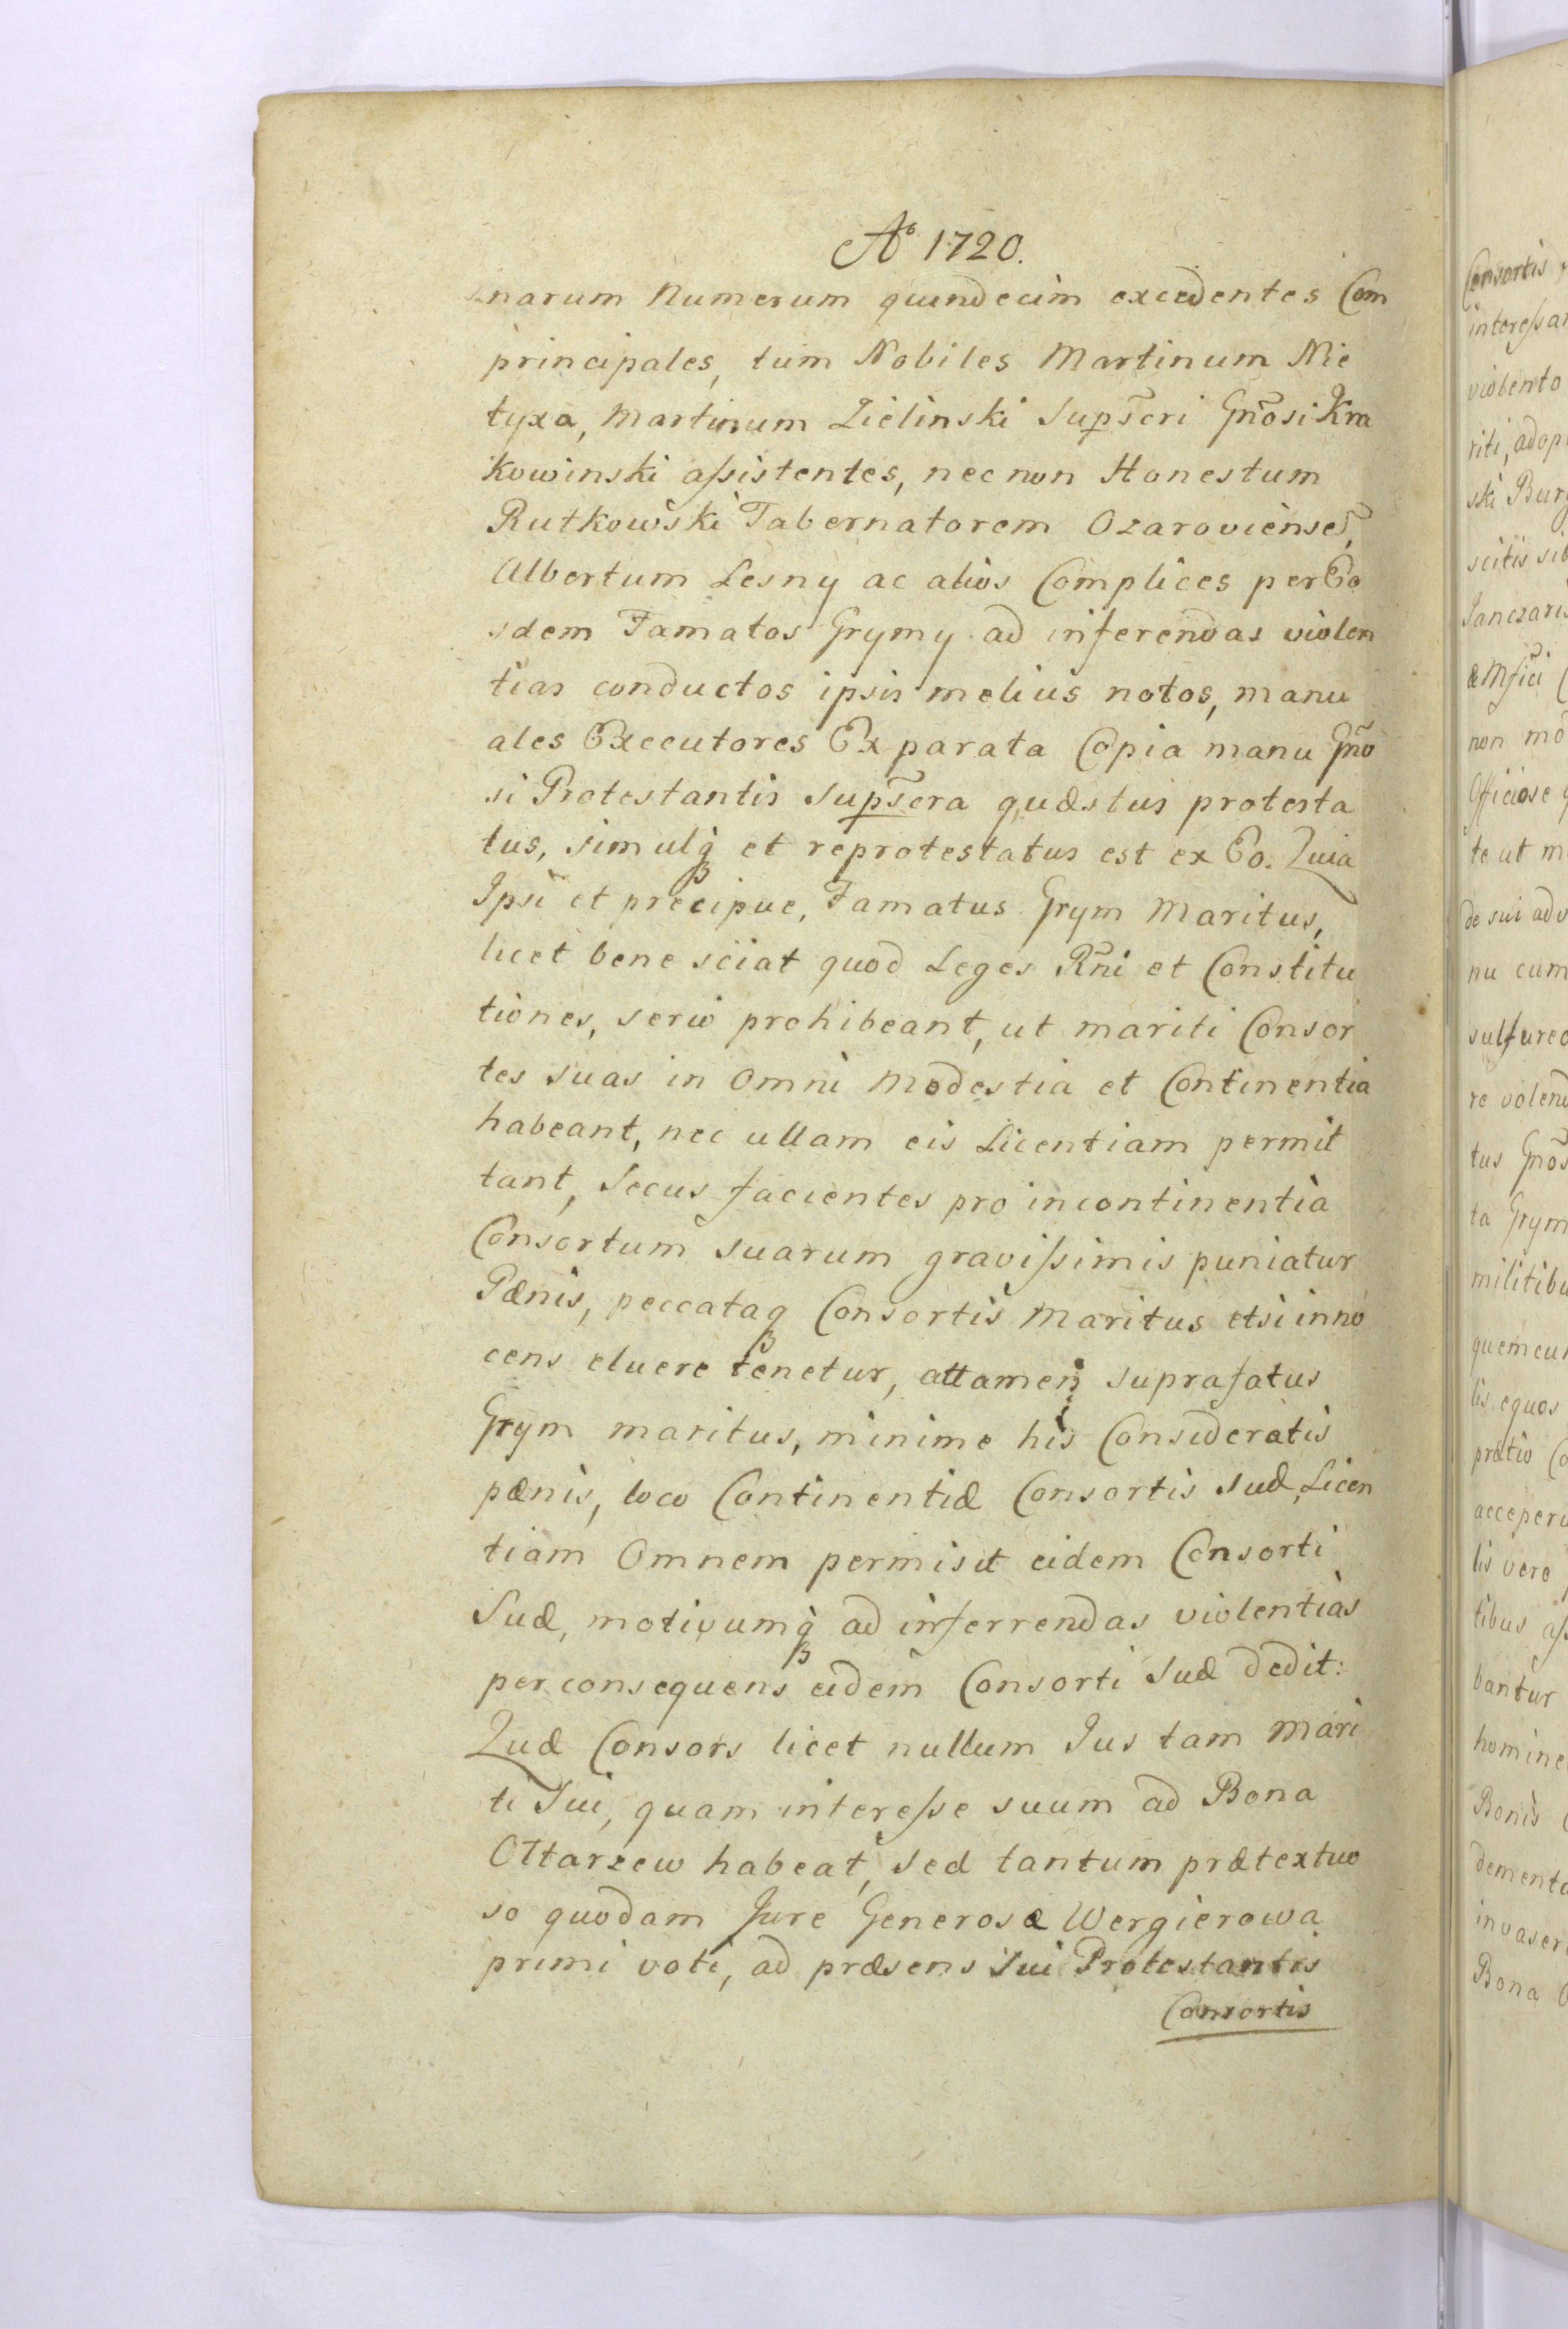 Aº 1720.
narum Numerum quindecim excedentes Com
principales, tum Nobiles Martinum Nie
tyxa, Martinum Zielinski Supscri Gnosi Kra
kowinski assistentes, nec non Honestum
Rutkowski Tabernatorem Ozaroviense,
Albertum Lesny ac alios Complices per Eo
sdem Famatos Grymy ad inferendas violen
tias conductos ipsis melius notos, manu
ales Executores Ex parata Copia manu Gno
si Protestantis Supscra quæstus protesta
tus, simulq et reprotestatus est ex Eo. Quia
Ipsi et precipue, Famatus Grym Maritus,
licet bene sciat quod Leges Rni et Constitu
tiones, serio prohibeant, ut mariti Consor
tes suas in Omni Modestia et Continentia
habeant, nec ullam eis Licentiam permit
tant, Secus facientes pro incontinentia
Consortum suarum gravissimis puniatur
Pænis, peccataq Consortis Maritus etsi inno
cens eluere tenetur, attamen suprafatus
Grym maritus, minime his Consideratis
pænis, loco Continentiæ Consortis suæ, Licen
tiam Omnem permisit eidem Consorti
Suæ, motivumq ad inferrendas violentias
per consequens eidem Consorti Suæ dedit:
Quæ Consors licet nullum Jus tam Mari
ti Sui, quam interesse suum ad Bona
Ottarzew habeat, sed tantum prætextuo
so quodam Jure Generosæ Wergierowa
primi voti, ad præsens Sui Protestantis
Consortis
Consortis
interessa
violento
riti, adop
ski Burg
scitis sib
Janczaris
non mo
Officiose
te ut m
de sui adv
nu cum
sulfureo
re volend
tus Gnos
ta Grym
militibu
quemcun
lis equos
pratio Co
acceperu
lis vero
tibus ass
bantur
homine
Bonis
demento
invaser
Bona O